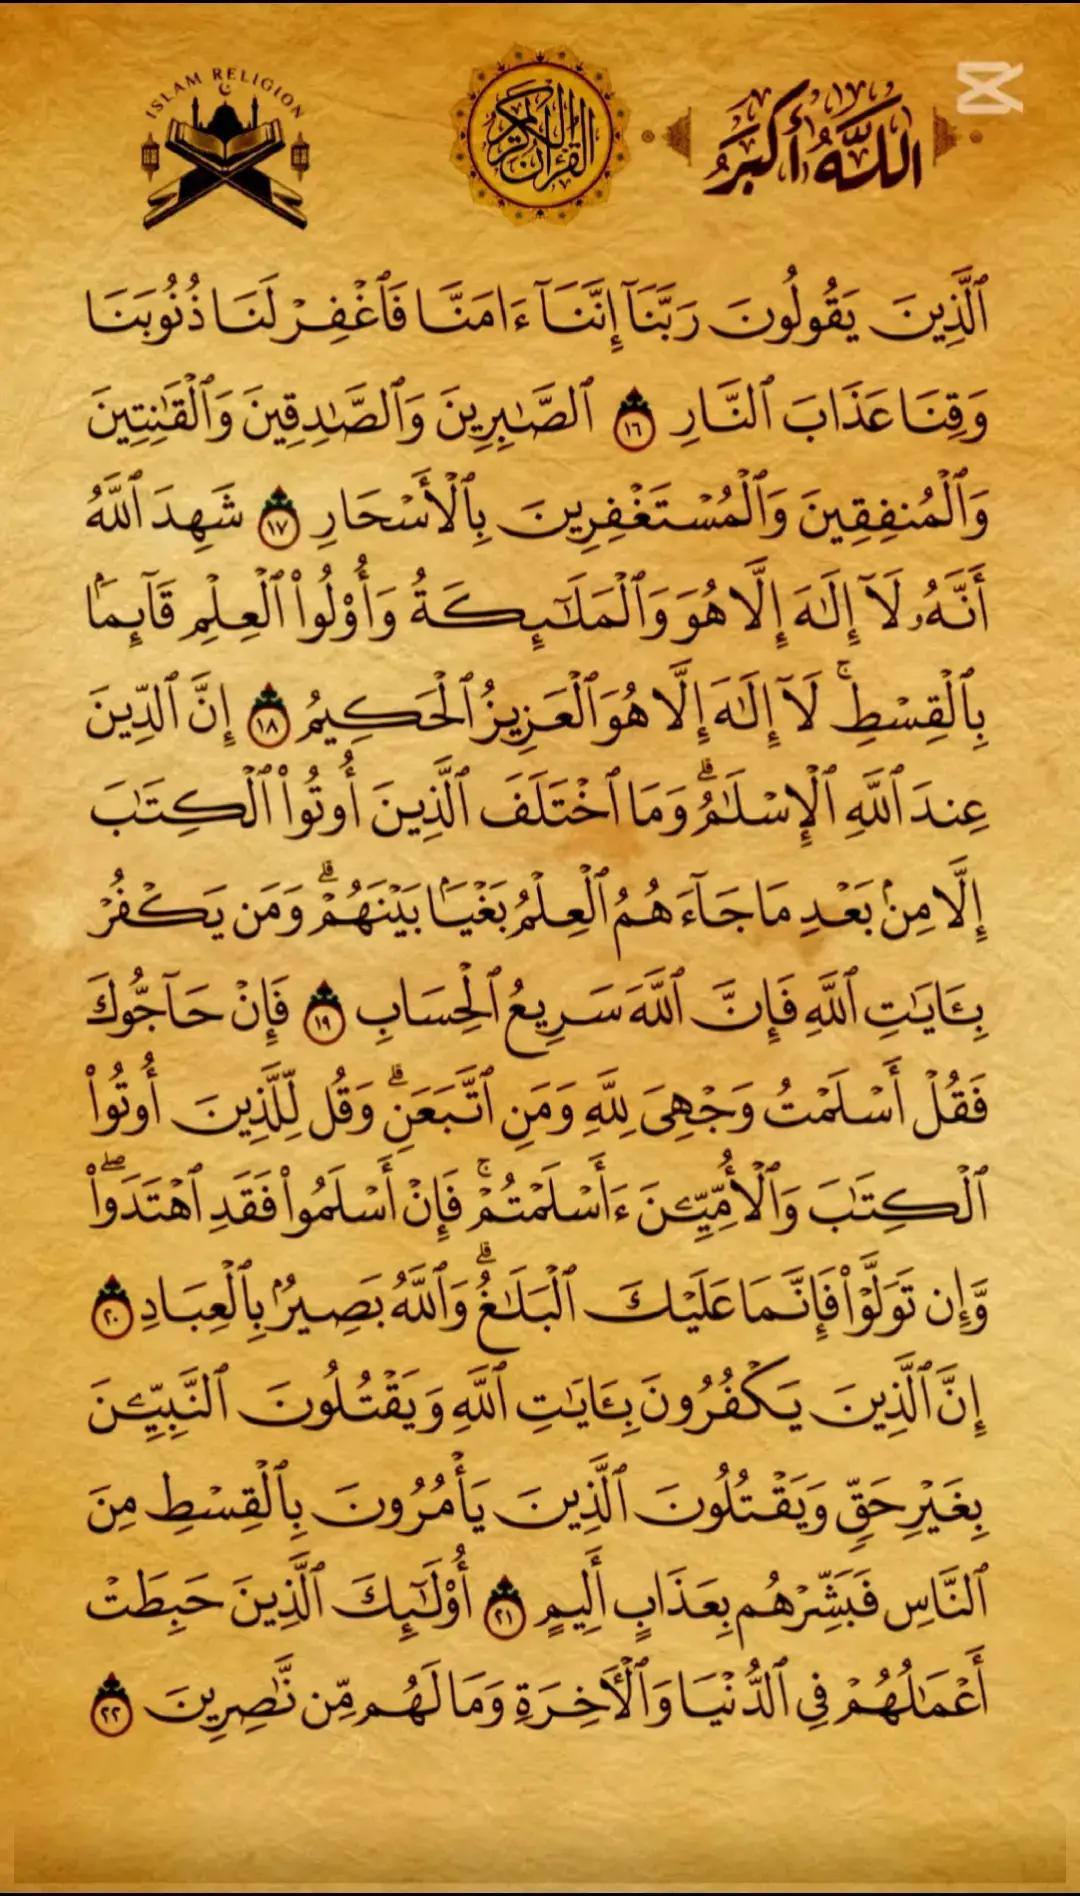 ISLAM RELIGION
القرآن الكريم
اللَّهُ أَكْبَرُ
ٱلَّذِينَ يَقُولُونَ رَبَّنَآ إِنَّنَآ ءَامَنَّا فَٱغْفِرْ لَنَا ذُنُوبَنَا
وَقِنَا عَذَابَ ٱلنَّارِ ١٦ ٱلصَّـٰبِرِينَ وَٱلصَّـٰدِقِينَ وَٱلْقَـٰنِتِينَ
وَٱلْمُنفِقِينَ وَٱلْمُسْتَغْفِرِينَ بِٱلْأَسْحَارِ ١٧ شَهِدَ ٱللَّهُ
أَنَّهُۥ لَآ إِلَـٰهَ إِلَّا هُوَ وَٱلْمَلَـٰٓئِكَةُ وَأُو۟لُوا۟ ٱلْعِلْمِ قَآئِمًۢا
بِٱلْقِسْطِ ۚ لَآ إِلَـٰهَ إِلَّا هُوَ ٱلْعَزِيزُ ٱلْحَكِيمُ ١٨ إِنَّ ٱلدِّينَ
عِندَ ٱللَّهِ ٱلْإِسْلَـٰمُ ۗ وَمَا ٱخْتَلَفَ ٱلَّذِينَ أُوتُوا۟ ٱلْكِتَـٰبَ
إِلَّا مِنۢ بَعْدِ مَا جَآءَهُمُ ٱلْعِلْمُ بَغْيًۢا بَيْنَهُمْ ۗ وَمَن يَكْفُرْ
بِـَٔايَـٰتِ ٱللَّهِ فَإِنَّ ٱللَّهَ سَرِيعُ ٱلْحِسَابِ ١٩ فَإِنْ حَآجُّوكَ
فَقُلْ أَسْلَمْتُ وَجْهِىَ لِلَّهِ وَمَنِ ٱتَّبَعَنِ ۗ وَقُل لِّلَّذِينَ أُوتُوا۟
ٱلْكِتَـٰبَ وَٱلْأُمِّيِّـۧنَ ءَأَسْلَمْتُمْ ۚ فَإِنْ أَسْلَمُوا۟ فَقَدِ ٱهْتَدَوا۟ ۖ
وَّإِن تَوَلَّوْا۟ فَإِنَّمَا عَلَيْكَ ٱلْبَلَـٰغُ ۗ وَٱللَّهُ بَصِيرٌۢ بِٱلْعِبَادِ ٢٠
إِنَّ ٱلَّذِينَ يَكْفُرُونَ بِـَٔايَـٰتِ ٱللَّهِ وَيَقْتُلُونَ ٱلنَّبِيِّـۧنَ
بِغَيْرِ حَقٍّ وَيَقْتُلُونَ ٱلَّذِينَ يَأْمُرُونَ بِٱلْقِسْطِ مِنَ
ٱلنَّاسِ فَبَشِّرْهُم بِعَذَابٍ أَلِيمٍ ٢١ أُو۟لَـٰٓئِكَ ٱلَّذِينَ حَبِطَتْ
أَعْمَـٰلُهُمْ فِى ٱلدُّنْيَا وَٱلْـَٔاخِرَةِ وَمَا لَهُم مِّن نَّـٰصِرِينَ ٢٢